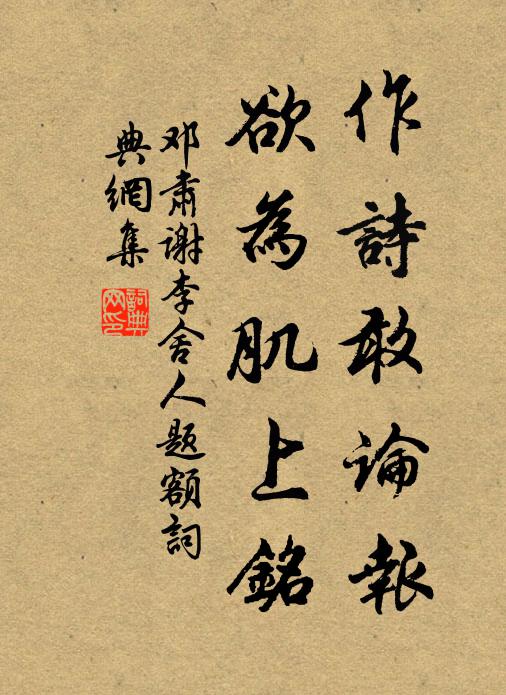 作詩敢論報
欲為肌上銘
邓肅谢李舍人题額詞
典網集
詞典網印